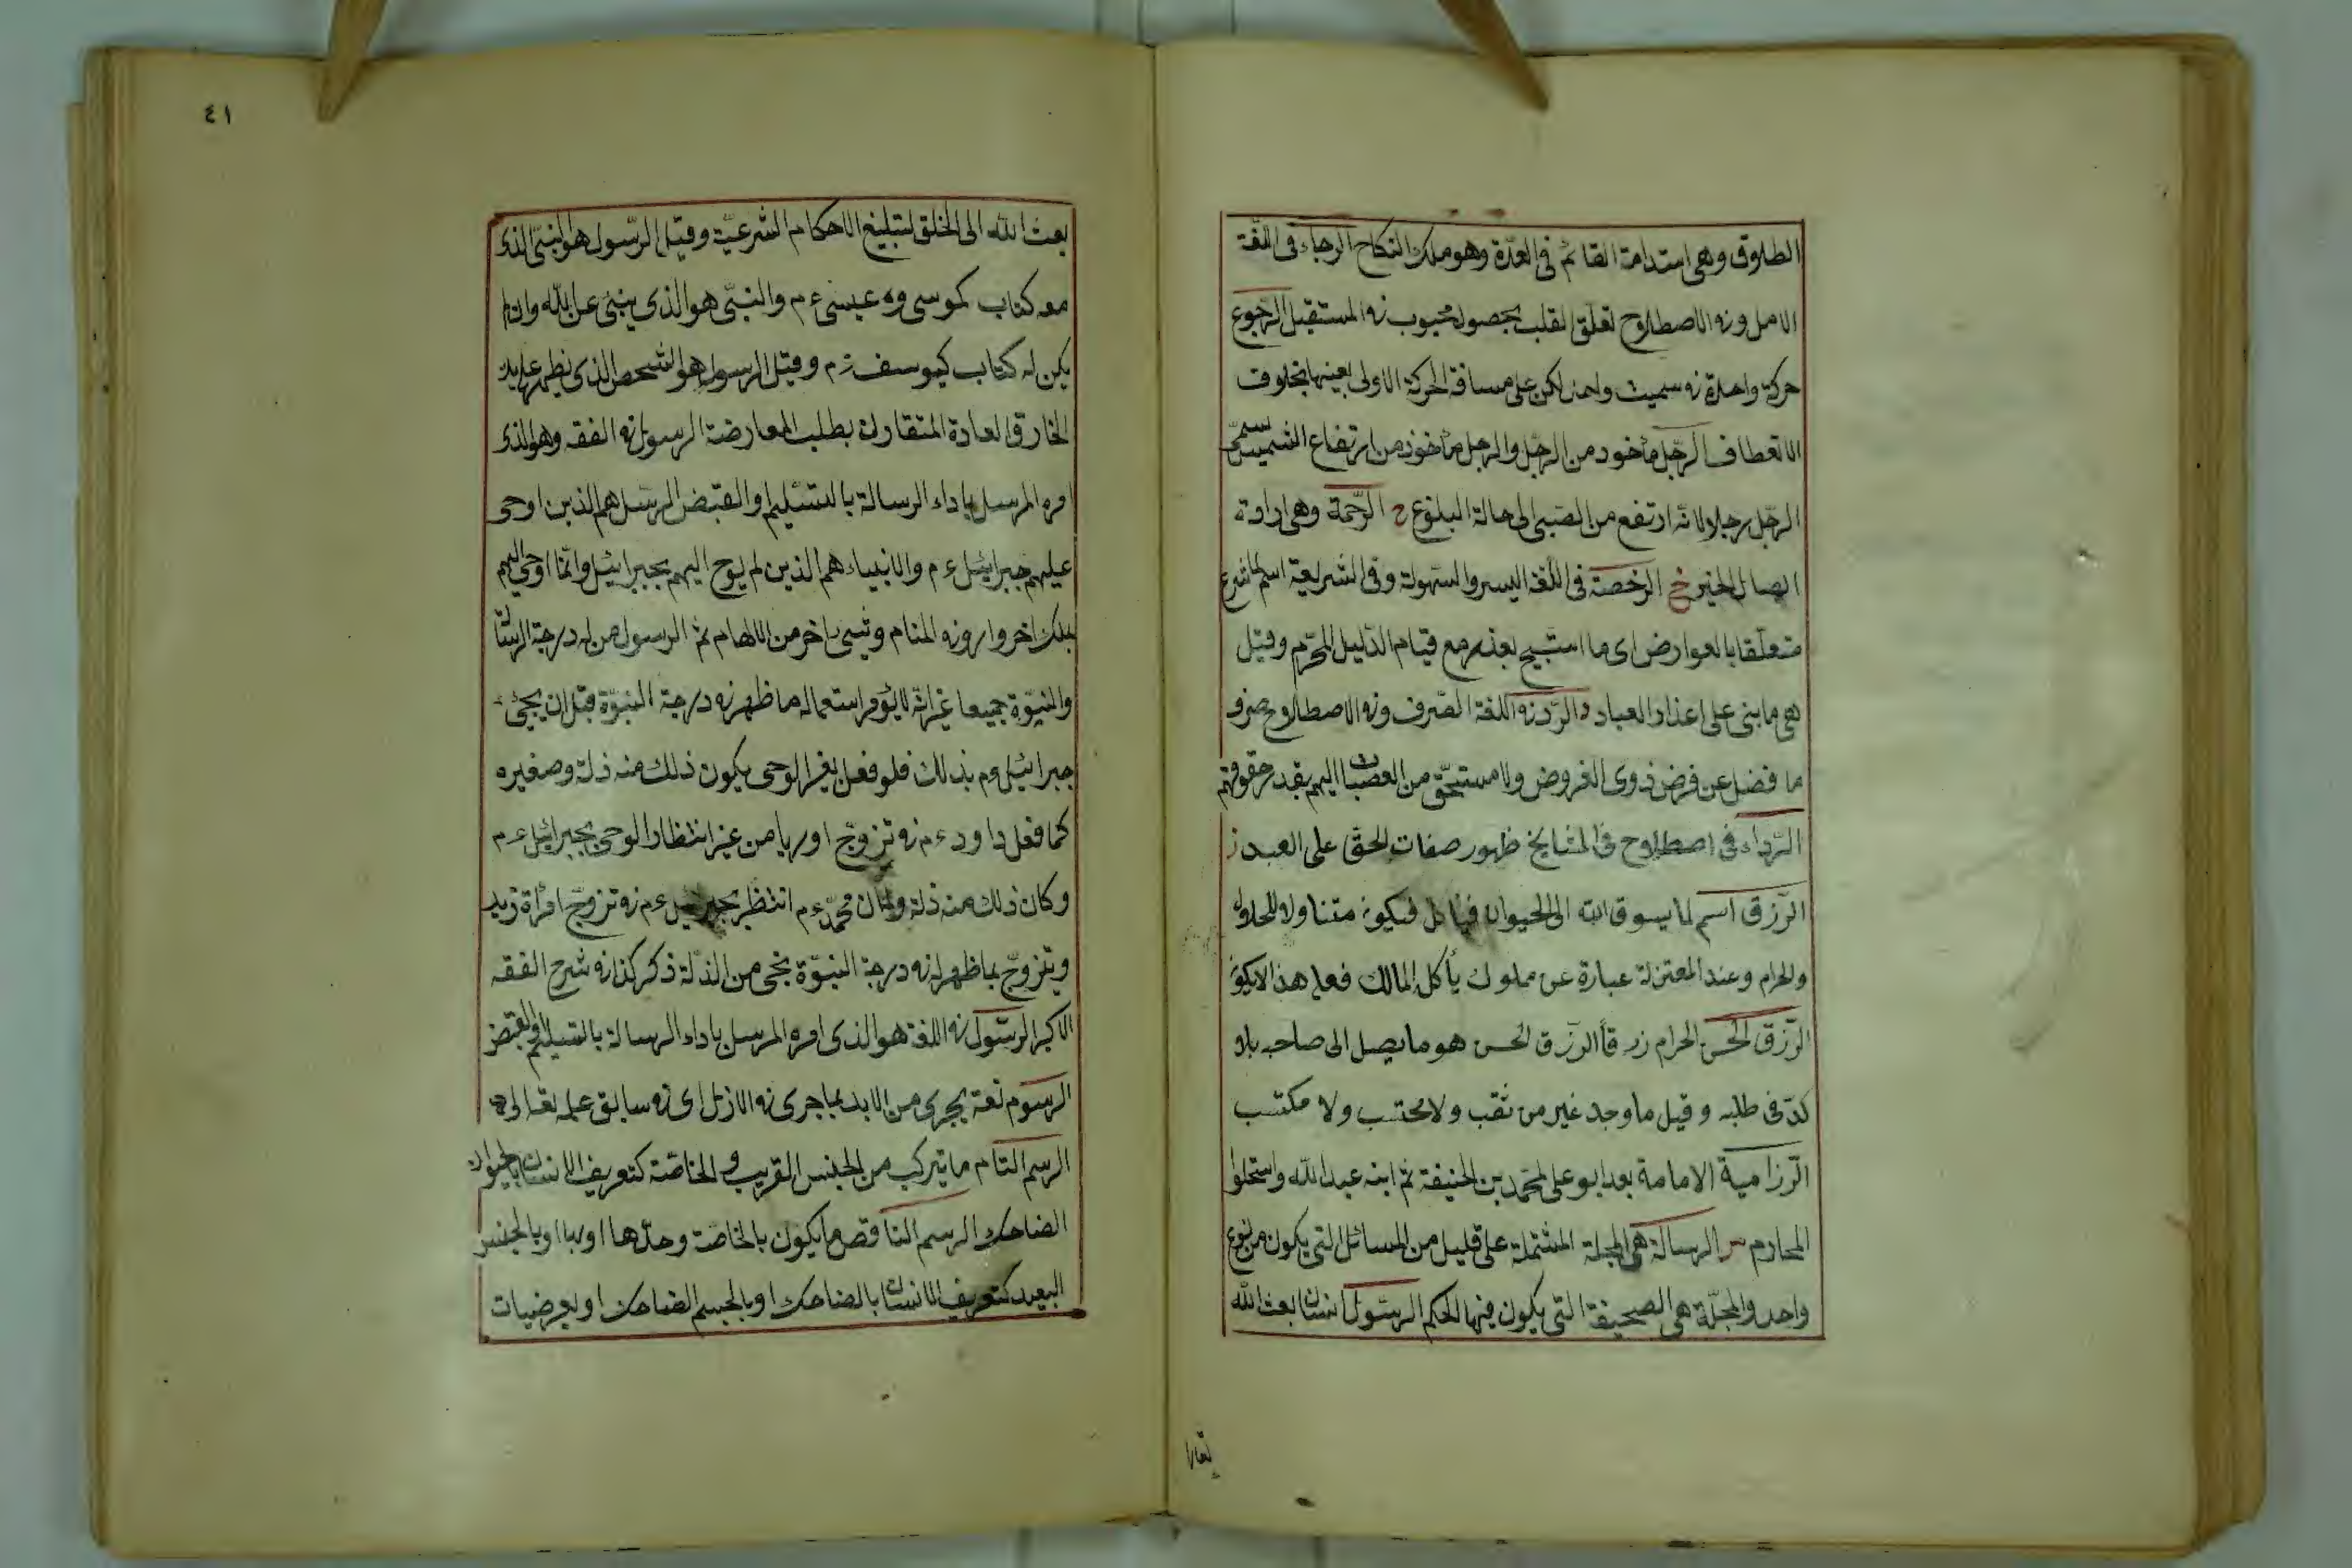 الطلاق وهى استدامة القائم فى العدّة وهو ملك النكاح الرجاء فى اللغة
الامل وفى الاصطلاح تعلّق القلب بحصول محبوب فى المستقبل الرجوع
حركة واحدة فى سميت واحد لكن على مسافة الحركة الاولى بعينها بخلاف
الانعطاف الرّجل مأخوذ من الرجل والرجل مأخوذ من ارتفاع الشمس سمى
الرّجل رجلا لانّه ارتفع من الصبى الى حالة البلوغ ح الرّحمة وهى ارادة
ايصال الخير خ الرخصة فى اللّغة اليسر والسّهولة وفى الشريعة اسم لما شرع
متعلّقا بالعوارض اى ما استبيح بعذر مع قيام الدّليل المحرّم وقيل
هى ما بنى على اعذار العباد د الرّد فى اللغة الصّرف وفى الاصطلاح صرف
ما فضل عن فرض ذوى الفروض ولا مستحقّ من العصبات اليهم بقدر حقوقهم
الرّداء فى اصطلاح فى المشايخ ظهور صفات الحقّ على العبد ز
الرّزق اسم لما يسوق الله الى الحيوان فيأكل فيكون متناولا للحلال
والحرام وعند المعتزلة عبارة عن مملوك يأكل المالك فعلى هذا لا يكون
الرّزق الحسن الحرام رزقا الرّزق الحسن هو ما يصل الى صاحبه بلا
كدّ فى طلبه و قيل ما وجد غير من ثقب ولا محتسب ولا مكتسب
الرّزامية الامامة بعد ابو على لمحمد بن الحنيفة ثم ابنه عبد الله واستحلوا
المحارم س الرسالة هى المجلة المشتملة على قليل من المسائل التى يكون من نوع
واحد والمجلّة هى الصحيفة التى يكون فيها الحكم الرسول انسان بعث الله
تعالى
٤١
بعث الله الى الخلق لتبليغ الاحكام الشرعيّة وقيل الرّسول هو النبىّ الذى
معه كتاب كموسى وه عيسى ع م والنبىّ هو الذى ينبئ عن الله وان لم
يكن له كتاب كيوسف ع م وقيل الرسول هو الشخص الذى يظهر على يد
الخارق العادة المتقارن بطلب المعارضة الرسول فى الفقه وهو الذى
امره المرسل باداء الرسالة بالتسليم او القبض الرّسل هم الذين اوحى
عليهم جبرائيل ع م والانبياء هم الذين لم يوح اليهم بجبرائيل وانّما اوحى اليهم
بملك اخر وارو فى المنام وشىء اخر من الالهام ثم الرسول من له درجة الرسالة
والنبوّة جميعا غير انّه لا يؤمر استعماله ما ظهر فى درجة النبوّة قبل ان يجئ
جبرائيل ع م بذلك فلو فعل بغير الوحى يكون ذلك منه ذلة وصغيره
كما فعل داود ع م فى تزوّج اوريا من غير انتظار الوحى بجبرائيل ع م
وكان ذلك منه ذلة ولما كان محمّد ع م انتظر بجبرائيل ع م فى تزوّج امرأة زيد
ويتزوّج بما ظهر له فى درجة النبوّة نجى من الذلّة ذكر كذا فى شرح الفقه
الاكبر الرسول فى اللغة هو الذى امره المرسل باداء الرسالة بالتسليم او القبض
الرسوم نعة يجرى من الابد بما جرى فى الازل اى فى سابق علمه تعالى
الرسم التام ما يتركب من الجنس القريب و الخاصّة كتعريف الانسان بالحيوان
الضاحك الرسم الناقص ما يكون بالخاصّة وحدها او بها او بالجنس
البعيد كتعريف الانسان بالضاحك او بالجسم الضاحك او بعرضيات